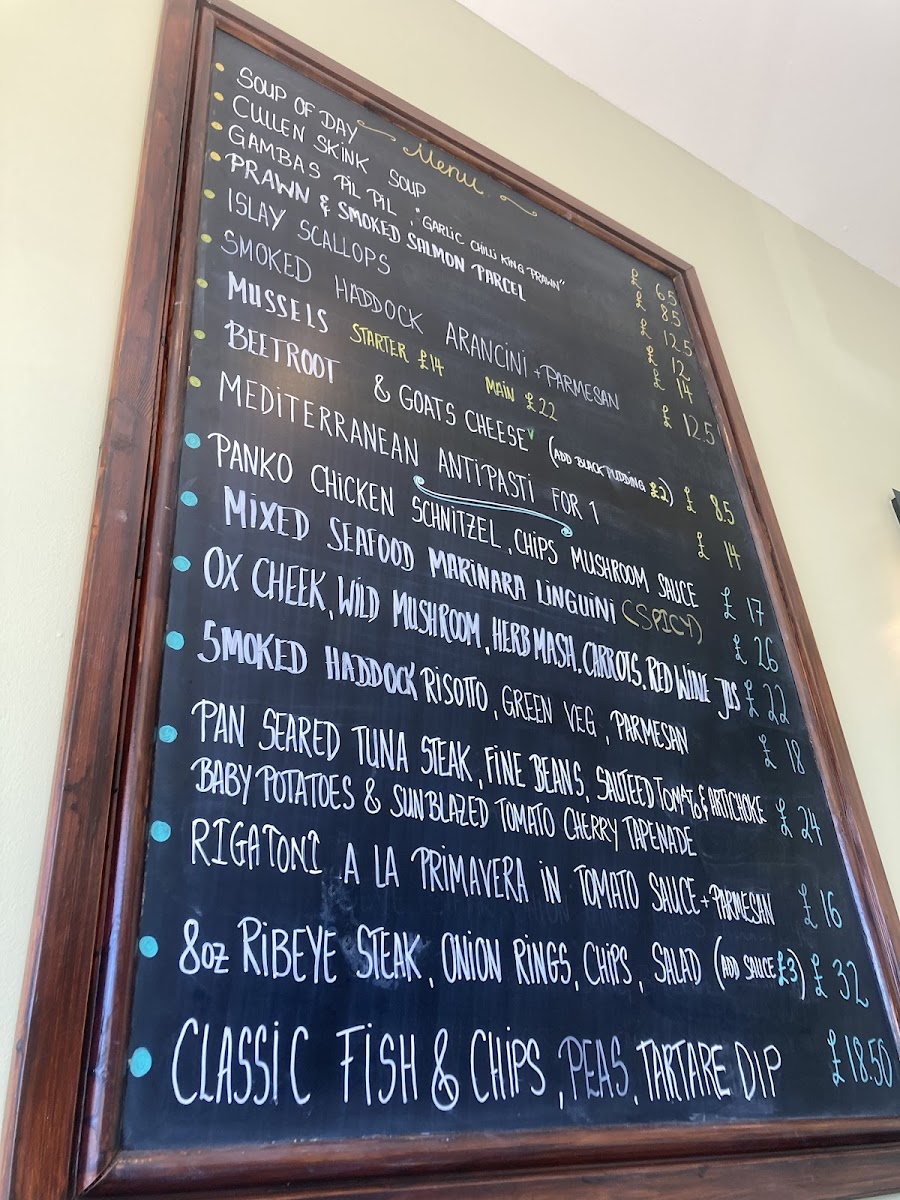 Menu
SOUP OF DAY £ 6.5
CULLEN SKINK SOUP £ 8.5
GAMBAS PIL PIL, "GARLIC CHILLI KING PRAWN" £ 12.5
PRAWN & SMOKED SALMON PARCEL £ 12
ISLAY SCALLOPS £ 14
SMOKED HADDOCK ARANCINI + PARMESAN £ 12.5
MUSSELS STARTER £14 MAIN £22
BEETROOT & GOATS CHEESE V (ADD BLACK PUDDING £2) £ 8.5
MEDITERRANEAN ANTIPASTI FOR 1 £ 14
PANKO CHICKEN SCHNITZEL, CHIPS MUSHROOM SAUCE £ 17
MIXED SEAFOOD MARINARA LINGUINI (SPICY) £ 26
OX CHEEK, WILD MUSHROOM, HERB MASH, CARROTS, RED WINE JUS £ 22
SMOKED HADDOCK RISOTTO, GREEN VEG, PARMESAN £ 18
PAN SEARED TUNA STEAK, FINE BEANS, SAUTEED TOMATO & ARTICHOKE £ 24
BABY POTATOES & SUNBLAZED TOMATO CHERRY TAPENADE
RIGATONI A LA PRIMAVERA IN TOMATO SAUCE + PARMESAN £ 16
8oz RIBEYE STEAK, ONION RINGS, CHIPS, SALAD (ADD SAUCE £3) £ 32
CLASSIC FISH & CHIPS, PEAS, TARTARE DIP £18.50